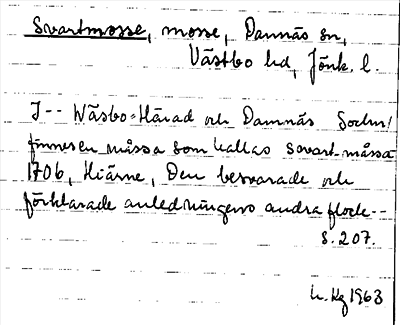 Svartmosse, mosse, Dannäs sn,
Västbo hd, Jönk. l.
J-- Wäsbo-Härad och Dannäs Sochn/
finnes en måssa som kallas Svart-måssa
1706, Hiärne, Den besvarade och
förklarade anledningens andra flock--
s. 207.
1963